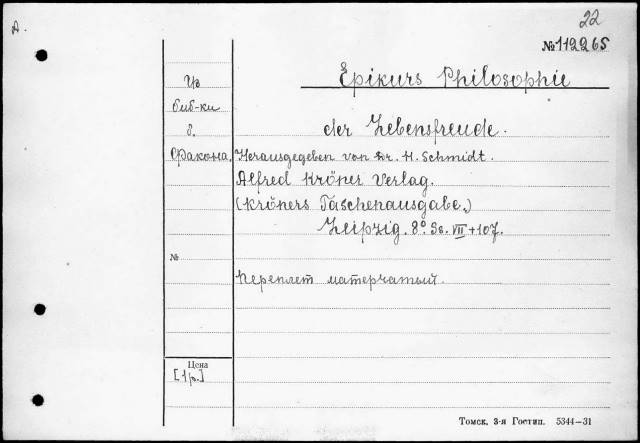 A.
22
№112265
Из
биб-ки
б.
Факона.
Epikurs Philosophie
der Lebensfreude.
Herausgegeben von Dr. H. Schmidt.
Alfred Kröner Verlag.
(Kröners Taschenausgabe.)
Leipzig. 8° Ss. VII + 107.
№
Переплет матерчатый.
Цена
[1р.]
Томск, 3-я Гостип. 5344—31